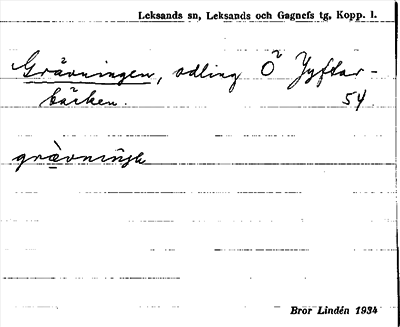 Leksands sn, Leksands och Gagnefs tg, Kopp. l.
Grävningen, odling Ö Jyftar-
bäcken. 54
Bror Lindén 1934